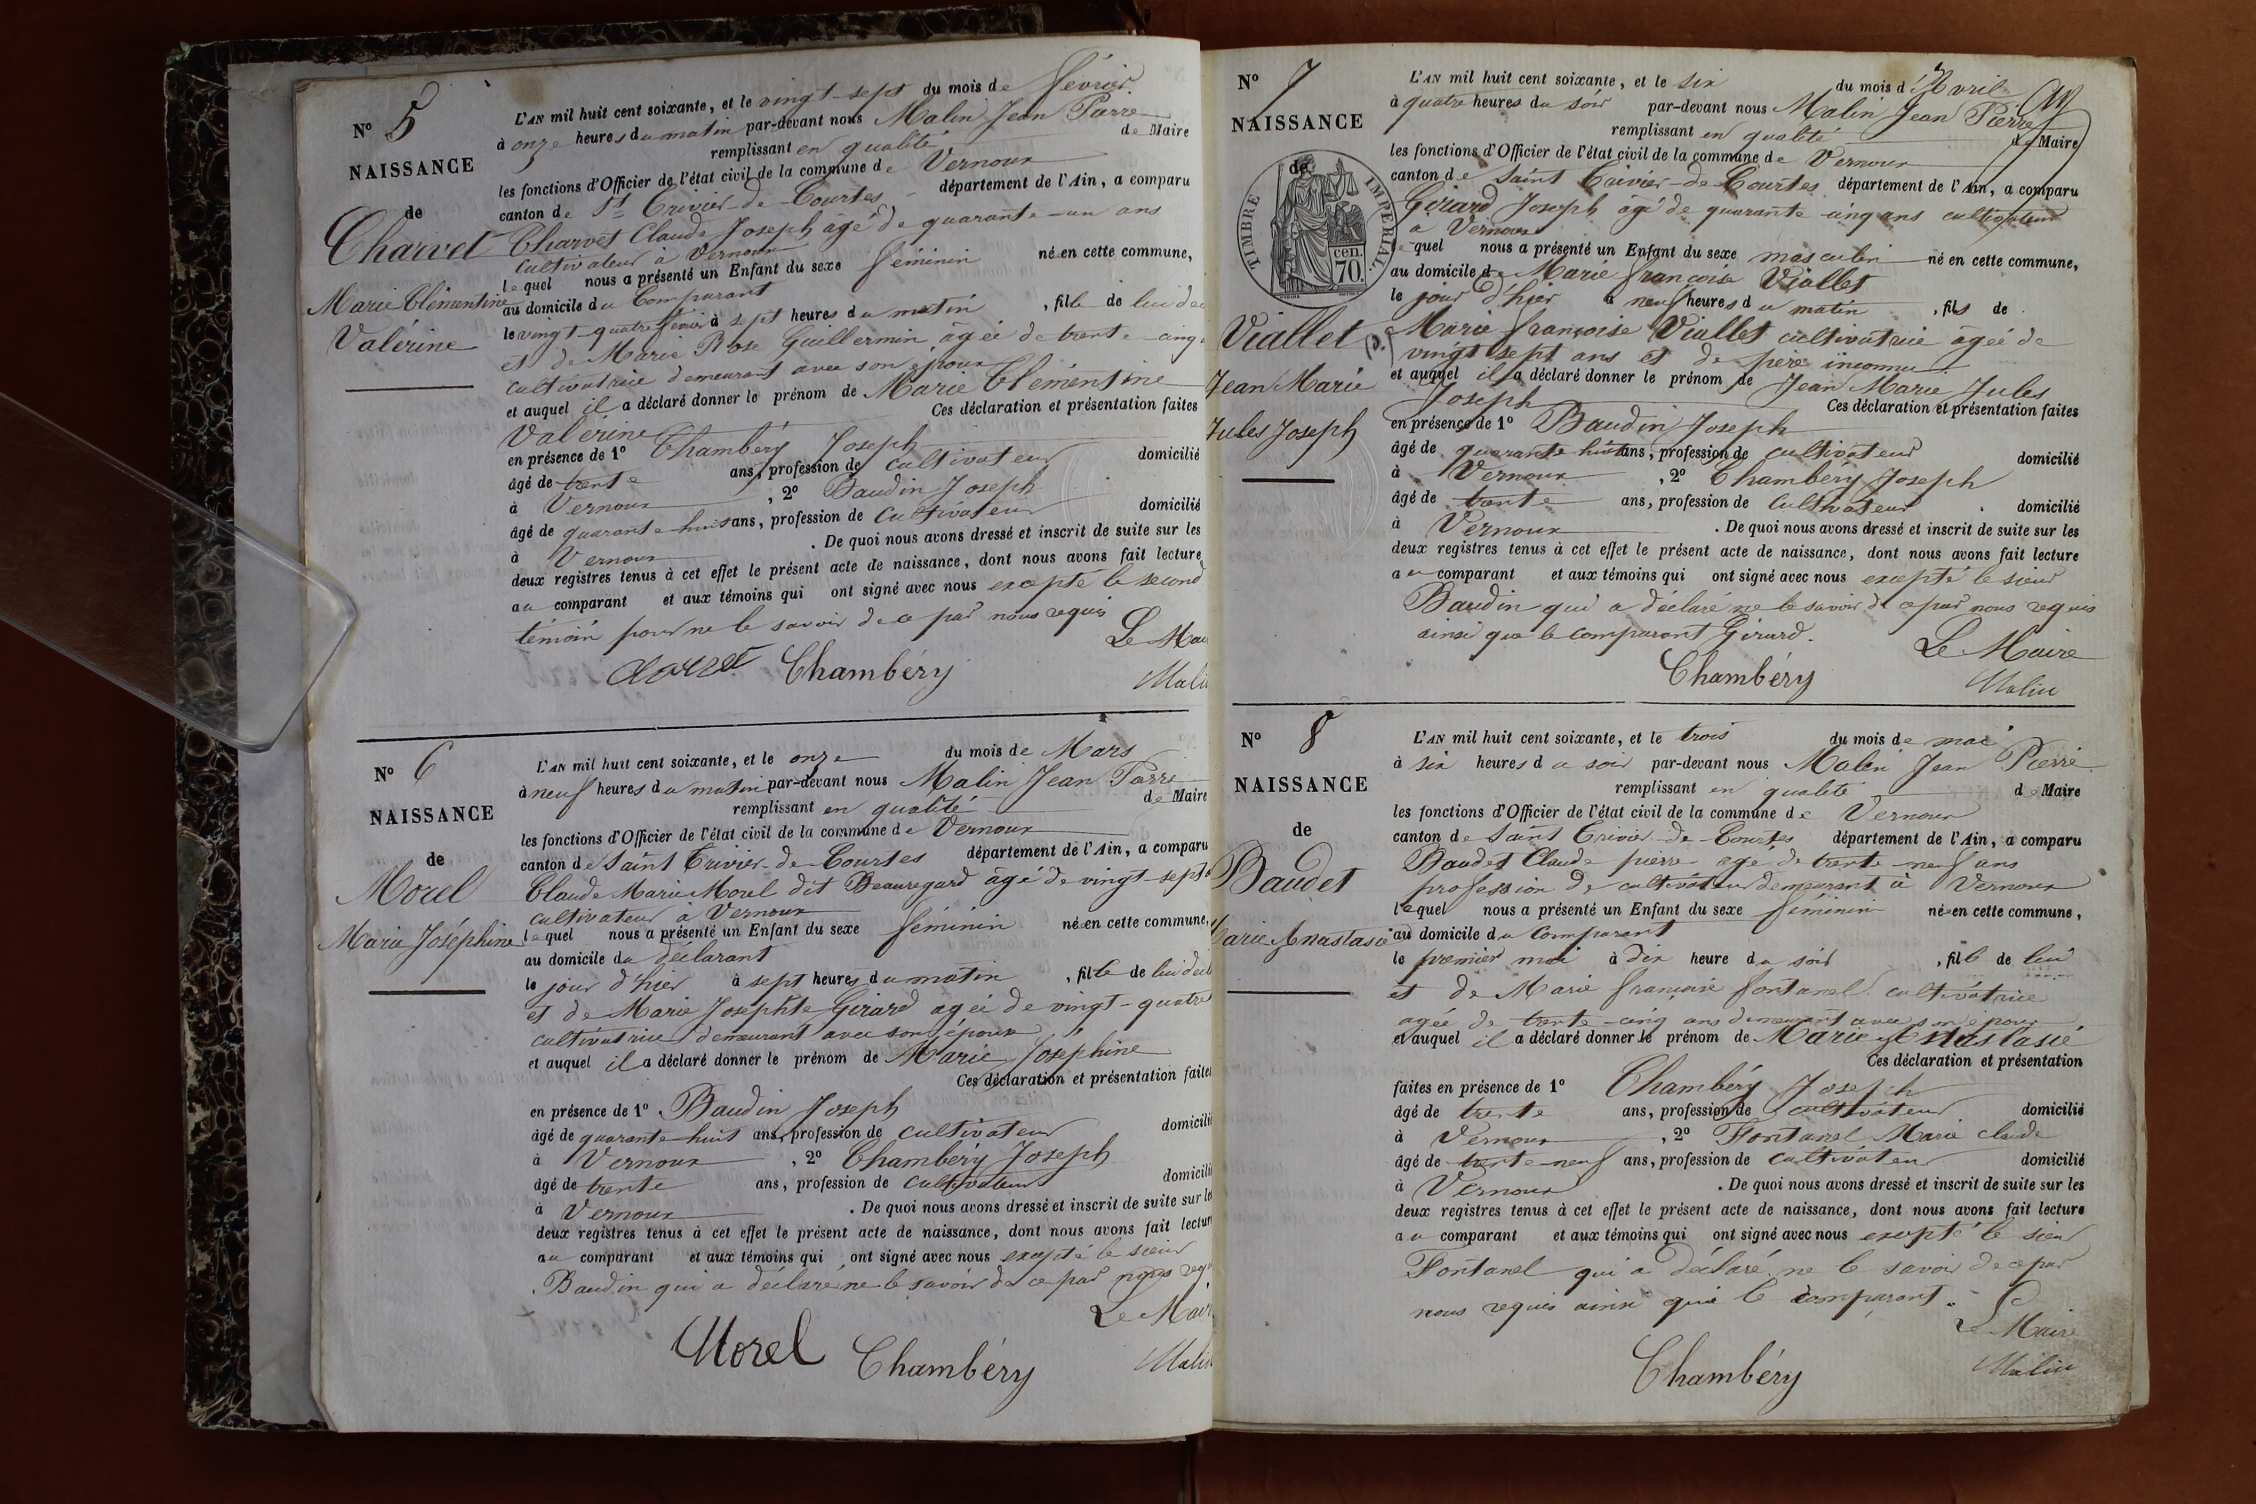 N° 5
NAISSANCE
de
Charvet
Marie Clémentine
Valérine
L'AN mil huit cent soixante, et le vingt-sept du mois de février
à onze heures du matin par-devant nous Malin Jean Pierre
remplissant en qualité de Maire
les fonctions d'Officier de l'état civil de la commune de Vernoux
canton de St Trivier-de-Courtes département de l'Ain, a comparu
Charvet Claude Joseph âgé de quarante-un ans
cultivateur à Vernoux
lequel nous a présenté un Enfant du sexe féminin née en cette commune,
au domicile du Comparant
le vingt-quatre février à sept heures du matin, fille de lui
et de Marie Rose Guillermin âgée de trente-cinq
cultivatrice demeurant avec son époux
et auquel il a déclaré donner le prénom de Marie Clémentine
Valérine Ces déclaration et présentation faites
en présence de 1° Chambéry Joseph
âgé de trente ans, profession de cultivateur domicilié
à Vernoux, 2° Baudin Joseph
âgé de quarante-huit ans, profession de cultivateur domicilié
à Vernoux. De quoi nous avons dressé et inscrit de suite sur les
deux registres tenus à cet effet le présent acte de naissance, dont nous avons fait lecture
au comparant et aux témoins qui ont signé avec nous excepté le second
témoin pour ne le savoir de ce par nous requis
Le Mai
Chambéry Malin
N° 6
NAISSANCE
de
Morel
Marie Joséphine
L'AN mil huit cent soixante, et le onze du mois de Mars
à neuf heures du matin par-devant nous Malin Jean Pierre
remplissant en qualité de Maire
les fonctions d'Officier de l'état civil de la commune de Vernoux
canton de Saint Trivier-de-Courtes département de l'Ain, a comparu
Claude Marie Morel dit Beauregard âgé de vingt-sept
cultivateur à Vernoux
lequel nous a présenté un Enfant du sexe féminin née en cette commune,
au domicile du déclarant
le jour d'hier à sept heures du matin, fille de lui
et de Marie Josephte Girard agée de vingt-quatre
cultivatrice demeurant avec son époux
et auquel il a déclaré donner le prénom de Marie Joséphine
Ces déclaration et présentation faites
en présence de 1° Baudin Joseph
âgé de quarante-huit ans, profession de cultivateur domicilié
à Vernoux, 2° Chambéry Joseph
âgé de trente ans, profession de cultivateur domicilié
à Vernoux. De quoi nous avons dressé et inscrit de suite sur les
deux registres tenus à cet effet le présent acte de naissance, dont nous avons fait lecture
au comparant et aux témoins qui ont signé avec nous excepté le sieur
Baudin qui a déclaré ne le savoir de ce par nous
Le Mair
Morel Chambéry Malin
N° 7
NAISSANCE
de
TIMBRE IMPERIAL
cen.
70.
Viallet
Jean Marie
Jules Joseph
L'AN mil huit cent soixante, et le six du mois d'Avril
à quatre heures du soir par-devant nous Malin Jean Pierre
remplissant en qualité de Maire
les fonctions d'Officier de l'état civil de la commune de Vernoux
canton de Saint Trivier-de-Courtes département de l'Ain, a comparu
Girard Joseph âgé de quarante-cinq ans cultivateur
à Vernoux
lequel nous a présenté un Enfant du sexe masculin né en cette commune,
au domicile de Marie françoise Viallet
le jour d'hier à neuf heures du matin, fils de
Marie françoise Viallet cultivatrice âgée de
vingt sept ans et de père inconnu
et auquel il a déclaré donner le prénom de Jean Marie Jules
Joseph Ces déclaration et présentation faites
en présence de 1° Baudin Joseph
âgé de quarante-huit ans, profession de cultivateur domicilié
à Vernoux, 2° Chambéry Joseph
âgé de trente ans, profession de cultivateur domicilié
à Vernoux. De quoi nous avons dressé et inscrit de suite sur les
deux registres tenus à cet effet le présent acte de naissance, dont nous avons fait lecture
au comparant et aux témoins qui ont signé avec nous excepté le sieur
Baudin qui a déclaré ne le savoir de ce par nous requis
ainsi que le comparant Girard.
Le Maire
Chambéry Malin
N° 8
NAISSANCE
de
Baudet
Marie Anastasie
L'AN mil huit cent soixante, et le trois du mois de mai
à six heures du soir par-devant nous Malin Jean Pierre
remplissant en qualité de Maire
les fonctions d'Officier de l'état civil de la commune de Vernoux
canton de Saint Trivier-de-Courtes département de l'Ain, a comparu
Baudet Claude pierre agé de trente-neuf ans
profession de cultivateur demeurant à Vernoux
lequel nous a présenté un Enfant du sexe féminin née en cette commune,
au domicile du comparant
le premier mai à dix heure du soir, fille de lui
et de Marie françoise fontanel cultivatrice
agée de trente-cinq ans demeurant avec son époux
et auquel il a déclaré donner le prénom de Marie Anastasie
Ces déclaration et présentation
faites en présence de 1° Chambéry Joseph
âgé de trente ans, profession de cultivateur domicilié
à Vernoux, 2° Fontanel Marie claude
âgé de trente-neuf ans, profession de cultivateur domicilié
à Vernoux. De quoi nous avons dressé et inscrit de suite sur les
deux registres tenus à cet effet le présent acte de naissance, dont nous avons fait lecture
au comparant et aux témoins qui ont signé avec nous excepté le sieur
Fontanel qui a déclaré ne le savoir de ce par
nous requis ainsi que le comparant.
Le Maire
Chambéry Malin